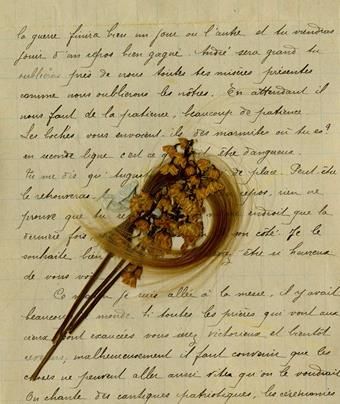 la guerre finira bien un jour ou l'autre et tu viendras
jouir d'un repos bien gagné. André sera grand tu
oublieras près de nous toutes tes misères présentes
comme nous oublierons les nôtres. En attendant il
nous faut de la patience, beaucoup de patience.
Les boches vous envoient-ils des marmites où tu es?
en seconde ligne c'est ce q être dangereux.
Tu me dis qu'August de place. Peut être
le retrouveras repos, rien ne
prouve que tu re endroit que la
dernière fois, on côté. Je le
souhaite bien être si heureux
de vous voi
Ce ma je suis allée à la messe, il y avait
beaucou monde. Si toutes les prières qui vont aux
cieux sont exaucées vous serez victorieux et bientôt
malheureusement il faut convenir que les
choses ne peuvent aller aussi vite qu'on le voudrait
On chante des cantiques patriotiques, les cérémonies